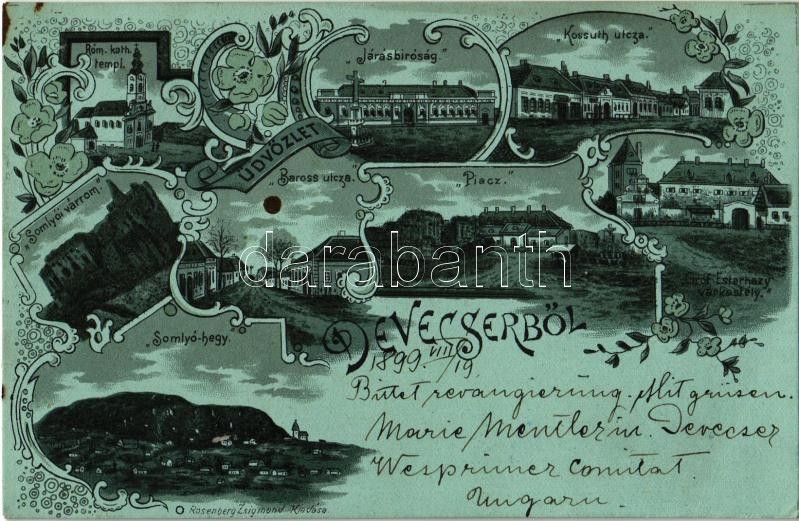 Róm. kath.
templ.
"Járásbiróság."
"Kossuth utcza."
ÜDVÖZLET
"Baross utcza."
"Piacz."
"Somlyói várrom."
Gróf Esterházy
várkastély."
darabanth
DEVECSERBŐL
"Somlyó-hegy."
1899 VIII/19.
Bittet revangierung. Mit grüsen.
Marie Mentlerin. Devecser
Wesprimer Comitat.
Ungarn.
Rosenberg Zsigmond Kiadása.